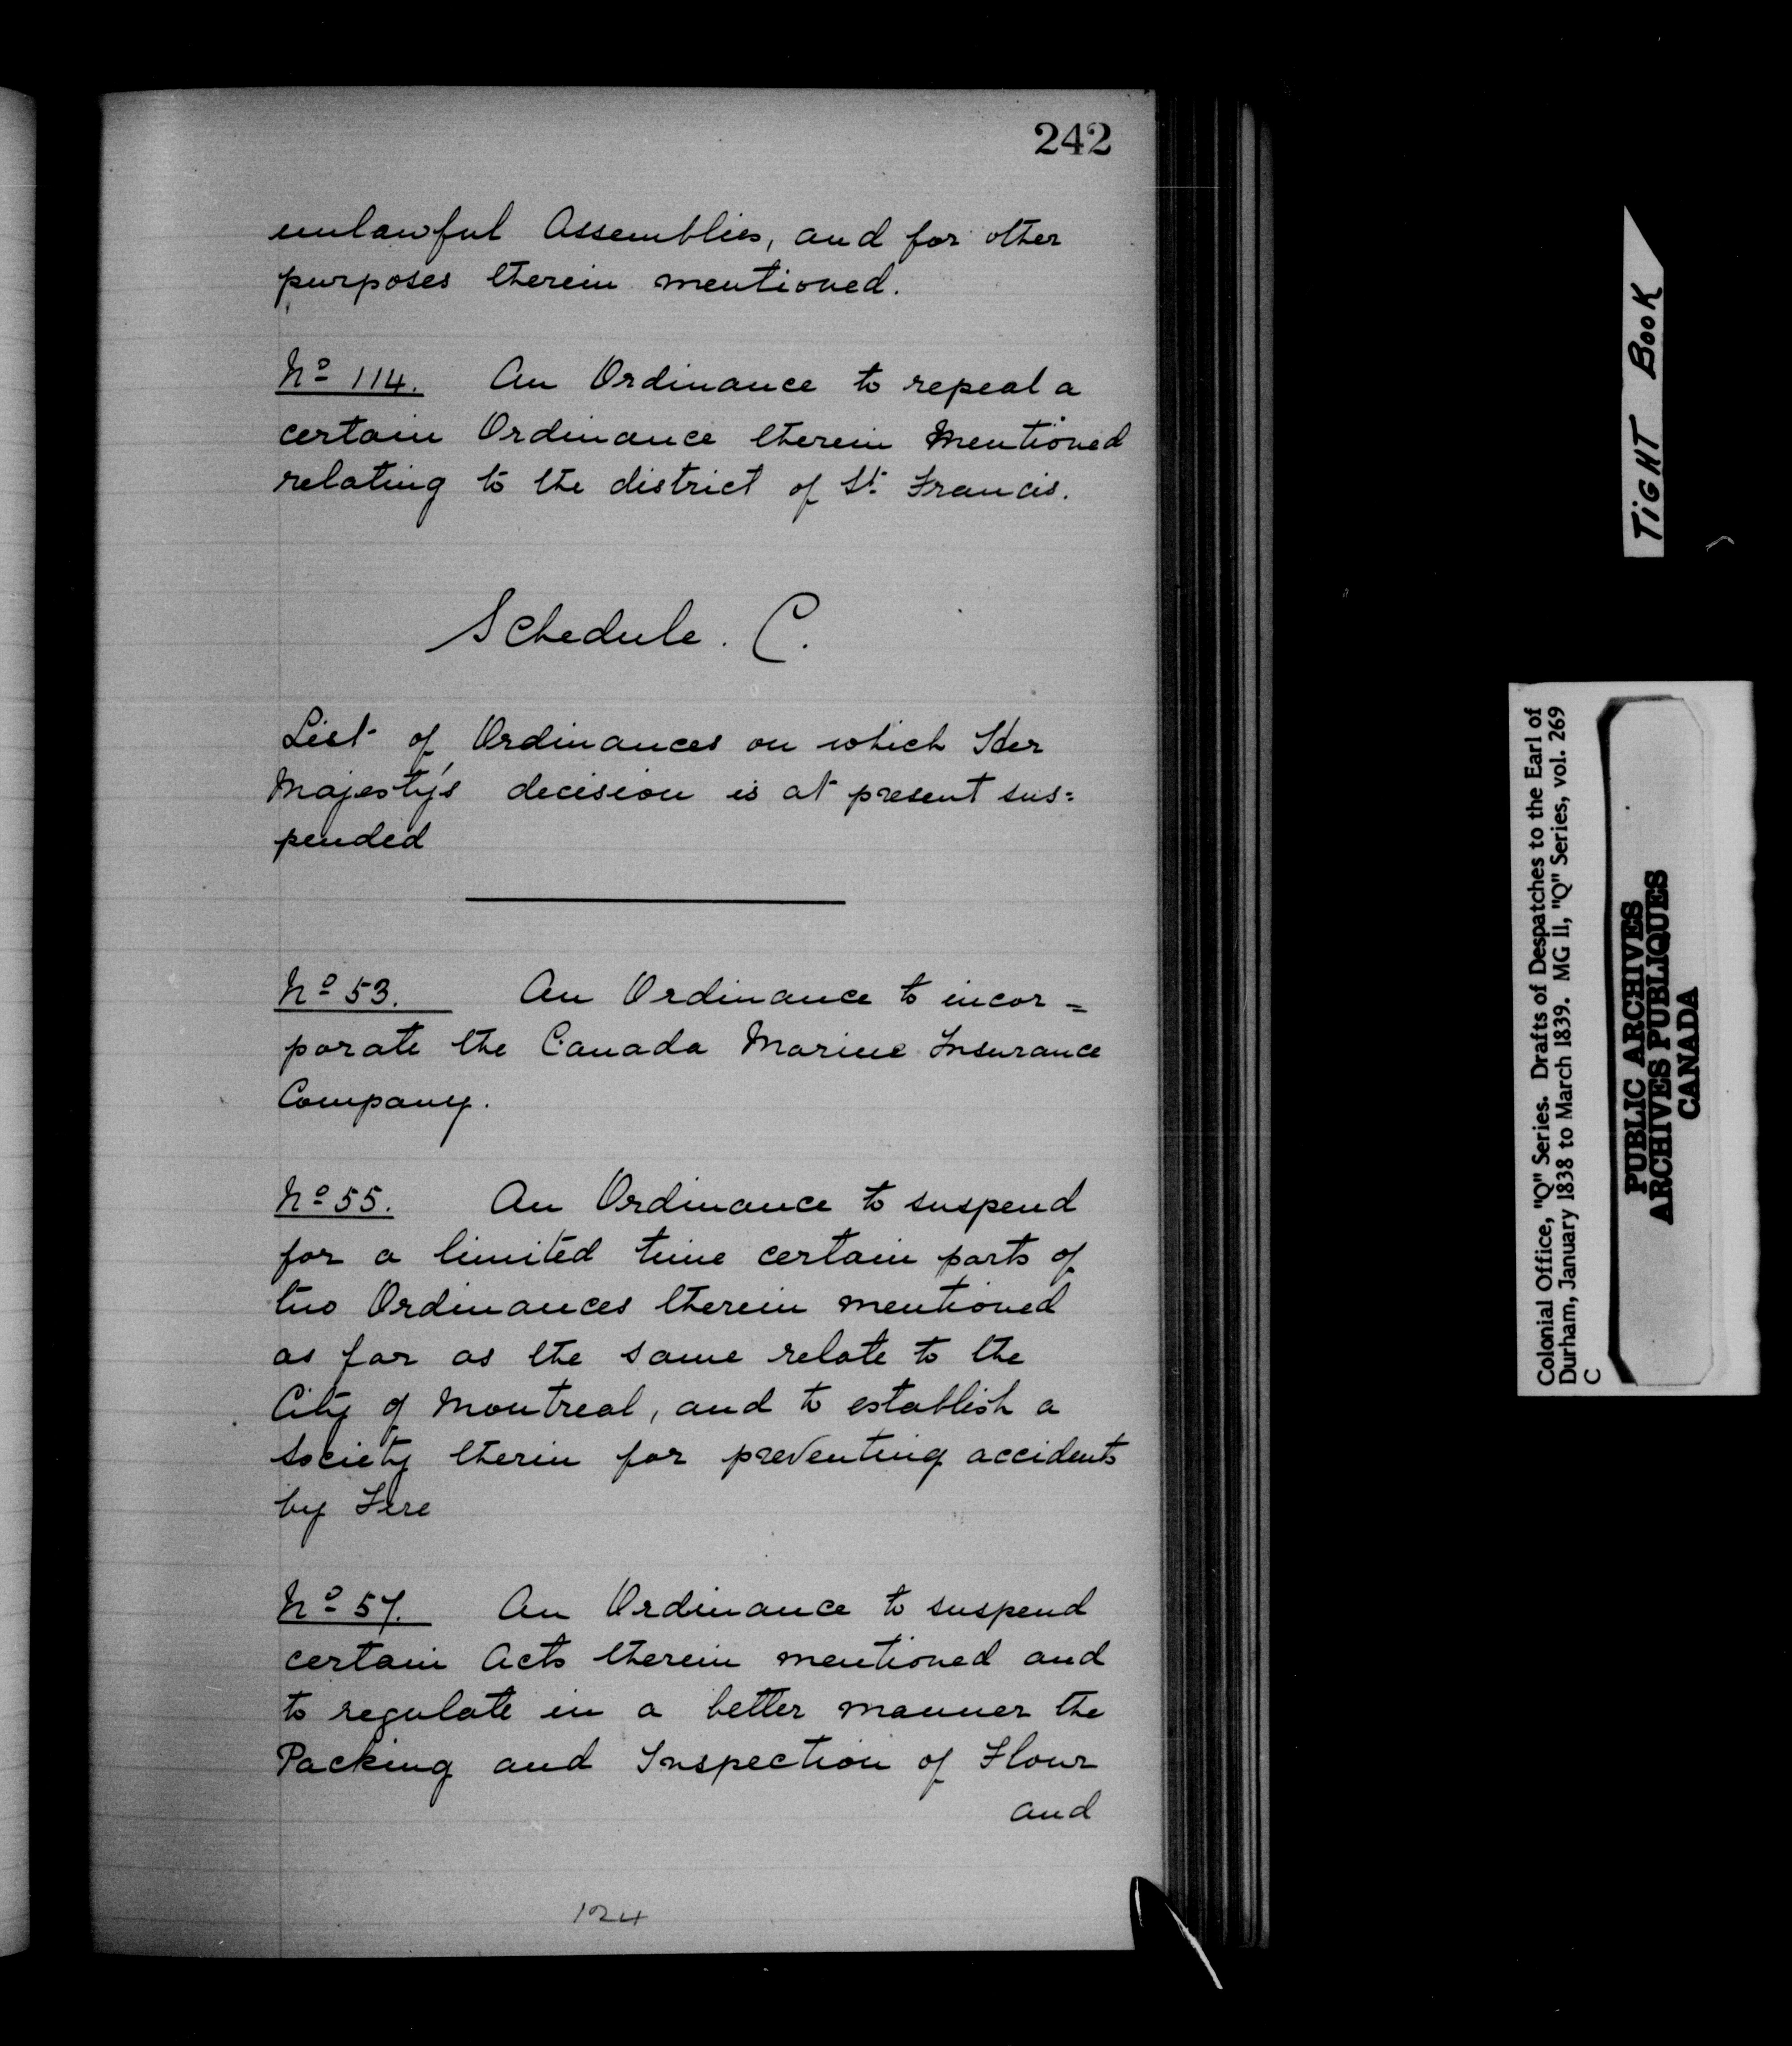 242
unlawful Assemblies, and for other
purposes therein mentioned.
No 114. An Ordinance to repeal a
certain Ordinance therein Mentioned
relating to the district of St. Francis.
Schedule. C.
List of Ordinances on which Her
Majesty's decision is at present sus=
pended
No 53. An Ordinance to incor=
porate the Canada Marine Insurance
Company.
No 55. An Ordinance to suspend
for a limited time certain parts of
two Ordinances therein mentioned
as far as the same relate to the
City of Montreal, and to establish a
Society therin for preventing accidents
by Fire
No 57. An Ordinance to suspend
certain Acts therein mentioned and
to regulate in a better manner the
Packing and Inspection of Flour
and
124
TIGHT BOOK
Colonial Office, "Q" Series. Drafts of Despatches to the Earl of
Durham, January 1838 to March 1839. MG 11, "Q" Series, vol. 269
C
PUBLIC ARCHIVES
ARCHIVES PUBLIQUES
CANADA